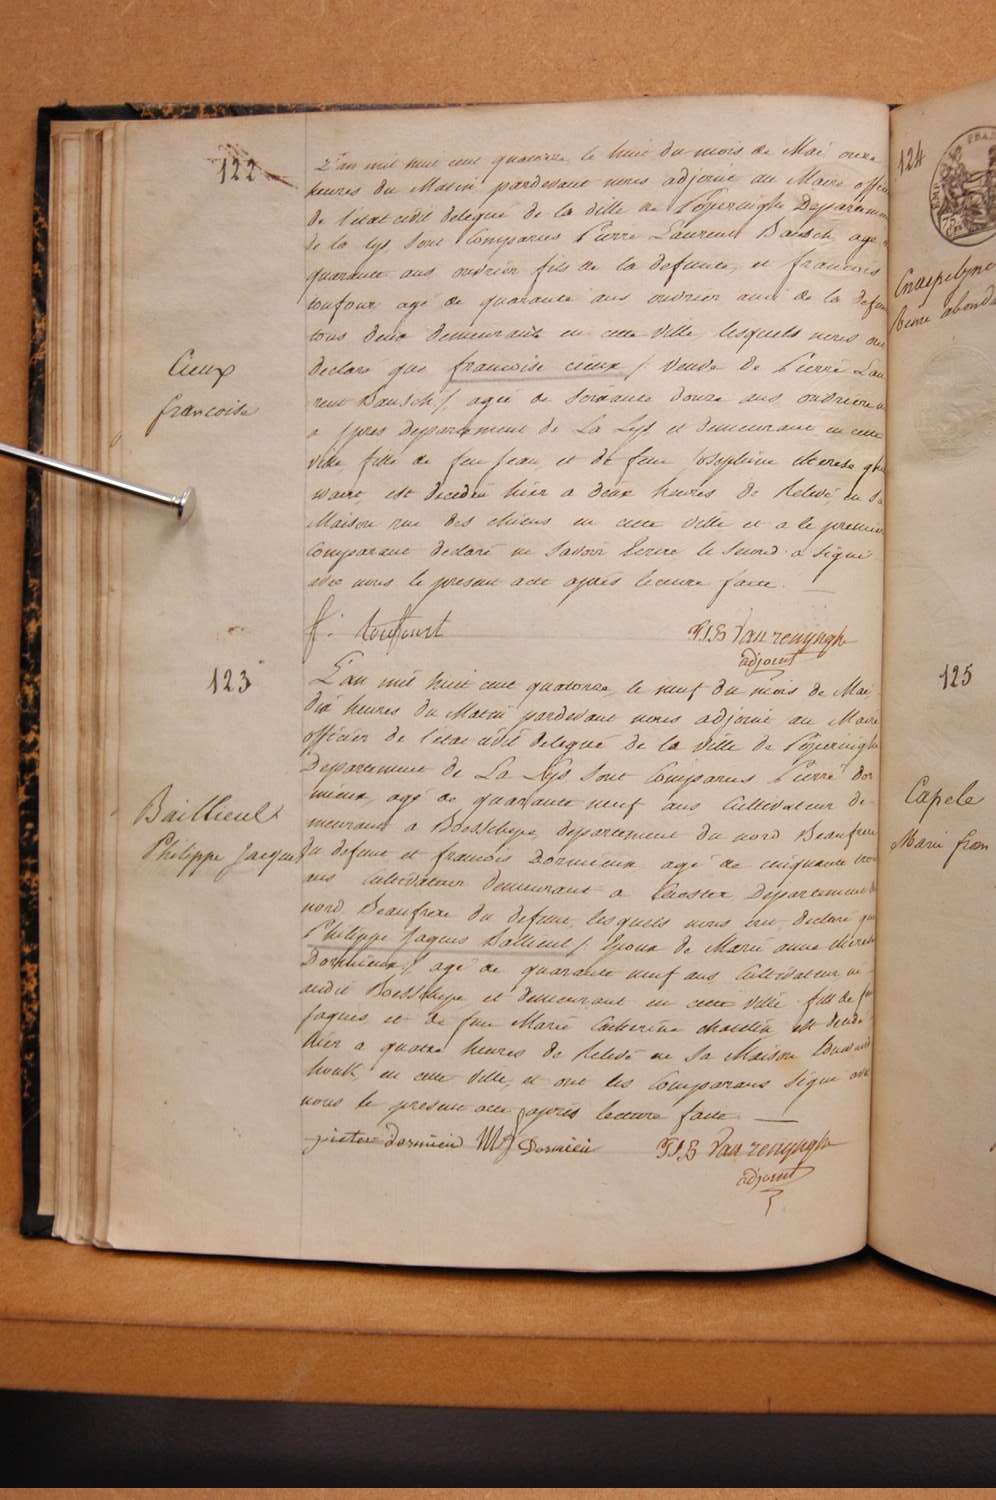 122
L'an mil huit cent quatorze, le huit du mois de Mai onze
heures du Matin pardevant nous adjoint au Maire offici
de l'état civil delegué de la ville de Poperinghe Departemen
de la Lys, sont Comparus Pierre Laurent Bausch, agé
quarante ans ouvrier fils de la defunte, et francois
toufour agé de quarante ans ouvrier ami de la defun
tous deux demeurants en cette ville, lesquels nous on
declaré que francoise cieux /: veuve de Pierre Lau
rent Bausch :/ agée de soixante douze ans, ouvriere
a Ypres Departement de La Lys et demeurant en cette
Cieux
francoise
ville fille de feu Jean, et de feue Josephine therese
est decedée hier a deux heures de Relevé, en sa
Maison rue des chiens en cette ville et a le premier
Comparant declaré ne savoir Ecrire le second a signé
avec nous le present acte après lecture faite.
f: toufourt
P.J.B Van renynghe
adjoint
123
L'an mil huit cent quatorze, le neuf du mois de Mai
dix heures du Matin pardevant nous adjoint au Maire
officier de l'état civil delegué de la ville de Poperinghe
Departement de La Lys, sont Comparus Pierre Dor
mieux, agé de quarante neuf ans Cultivateur de-
meurant a Boeschepe, departement du nord Beaufrere
du defunt et francois Dormieux agé de cinquante trois
ans Cultivateur demeurant a Caester, Departement du
nord Beaufrere du defunt, lesquels nous ont declaré que
Philippe Jaques Ballieul /: Epoux de Marie anne therese
Dormieux :/ agé de quarante neuf ans, Cultivateur né
audit Boeschepe et demeurant en cette ville fils de feu
Jaques et de feue Marie Catherine est decedé
hier a quatre heures de Relevé en sa Maison
houk, en cette ville, et ont les Comparans signé avec
nous le present acte après lecture faite.
Baillieul
Philippe Jacques
pieter dormieu
Dormieu
P.J.B Van renynghe
adjoint
124
125
Capele
Marie fran